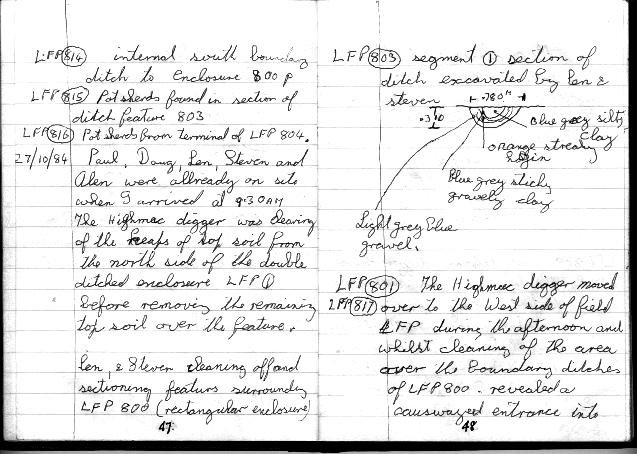 LFP 814 internal south boundary
ditch to Enclosure 800 p
LFP 815 Pot sherds found in section of
ditch feature 803
LFP 816 Pot sherds from terminal of LFP 804.
27/10/84 Paul, Doug, Len, Steven and
Alen were allready on site
when I arrived at 9.30AM
The Highmac digger was clearing
of the heaps of top soil from
the north side of the double
ditched enclosure LFP 1
before removing the remaining
top soil over the feature.
Len, & Steven cleaning off and
sectioning featurs surroundig
LFP 800 (rectangular enclosure)
47
LFP 803 segment 1 section of
ditch excavated by Len &
steven
.780M
Blue grey silty
clay
orange streaky
Blue grey sticky
gravely clay
Light grey blue
gravel.
LFP 801 The Highmac digger moved
LFP 817 over to the West side of field
LFP during the afternoon and
whilst cleaning of the area
over the boundary ditches
of LFP 800 . revealed a
causwayed entrance into
48